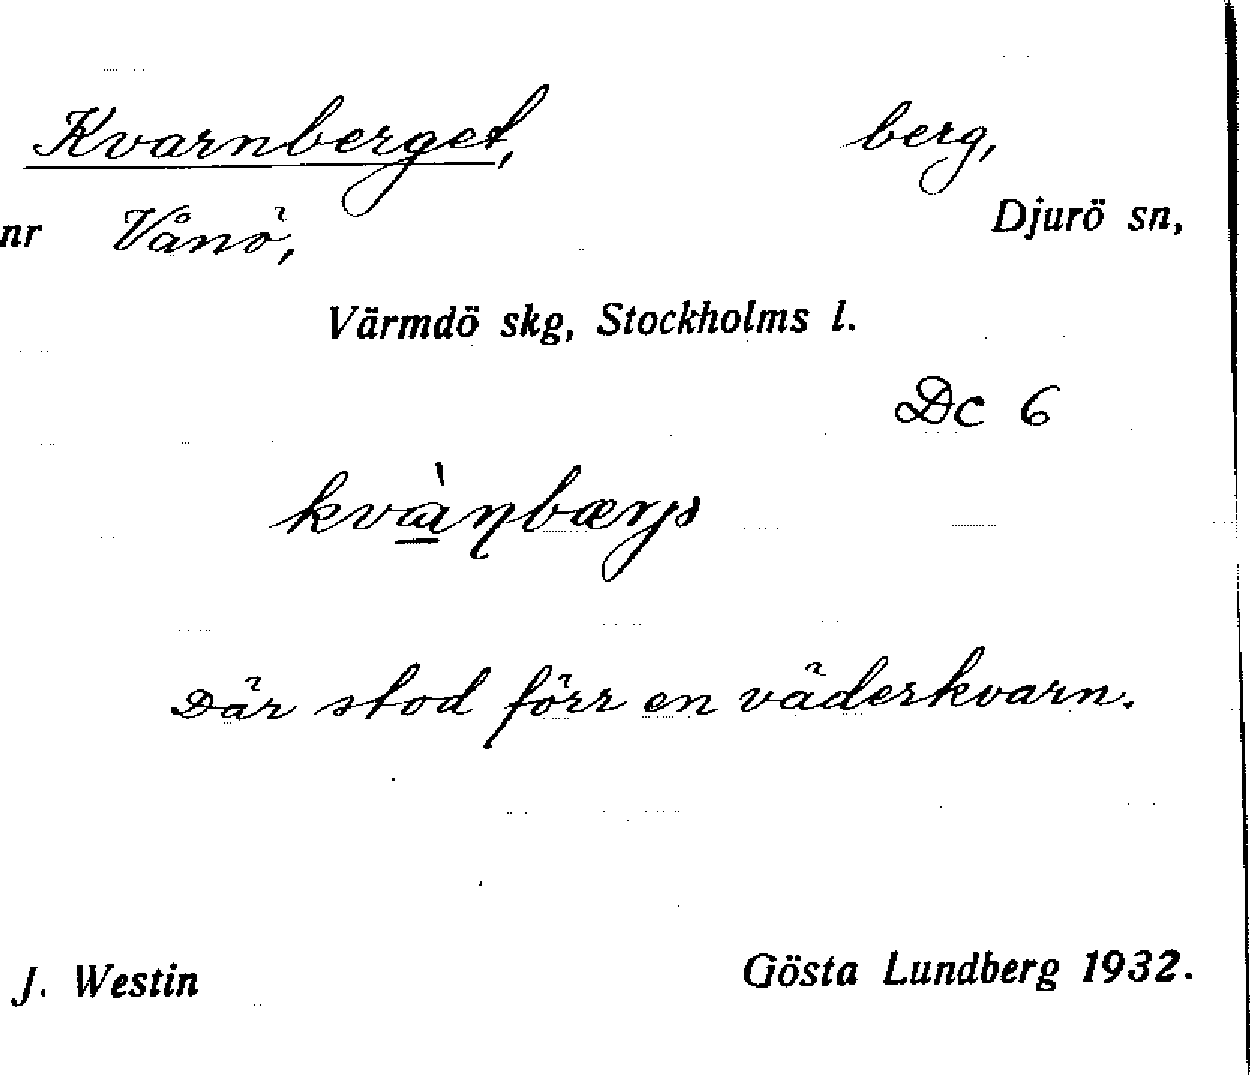 Kvarnberget, berg,
nr Vånö, Djurö sn,
Värmdö skg, Stockholms l.
Dc 6
Där stod förr en väderkvarn.
J. Westin Gösta Lundberg 1932.